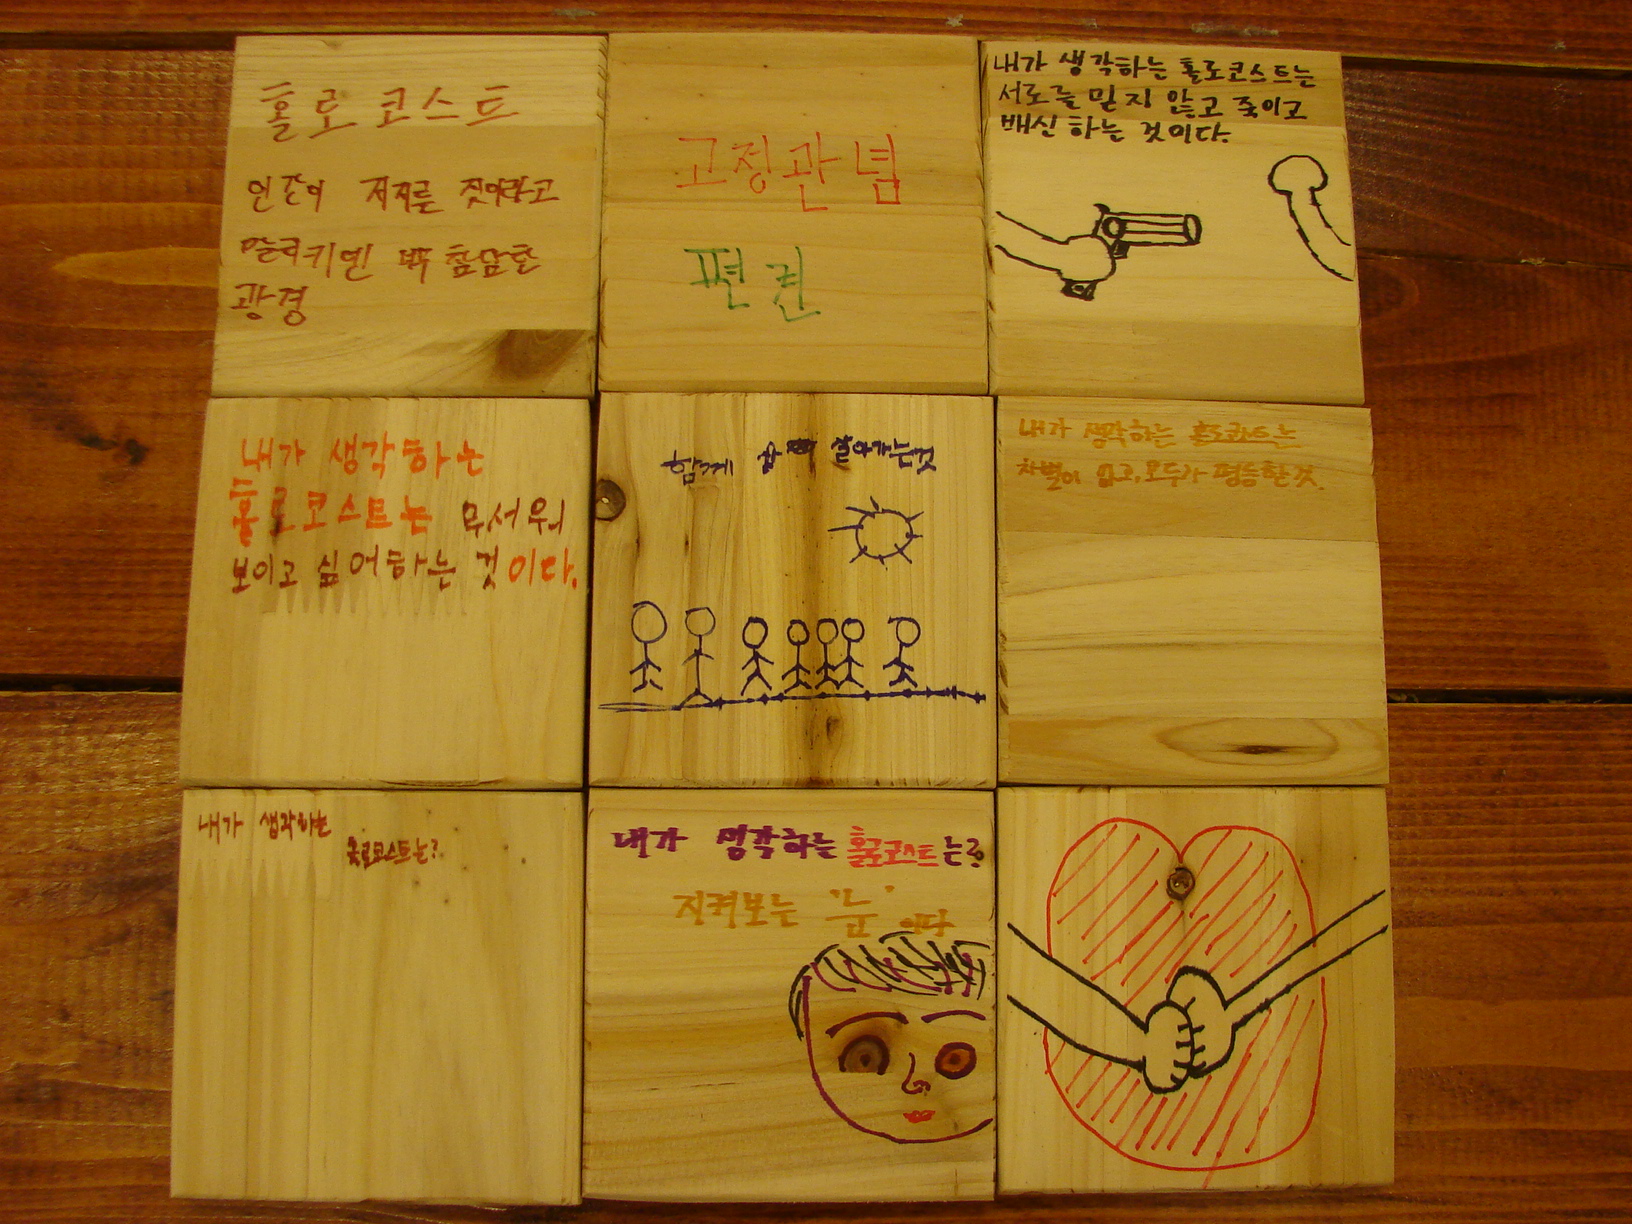 홀로코스트
인간이 저지른 짓이라고
믿기엔 참담한
광경
고정관념
편견
내가 생각하는 홀로코스트는
서로를 믿지 않고 죽이고
배신하는 것이다.
내가 생각하는
홀로코스트는 무서워
보이고 싫어하는 것이다.
함께 살아가는것
내가 생각하는 홀로코스트는
차별이 없고, 모두가 평등한것.
내가 생각하는
홀로코스트는?
내가 생각하는 홀로코스트는?
지켜보는 '눈' 이다